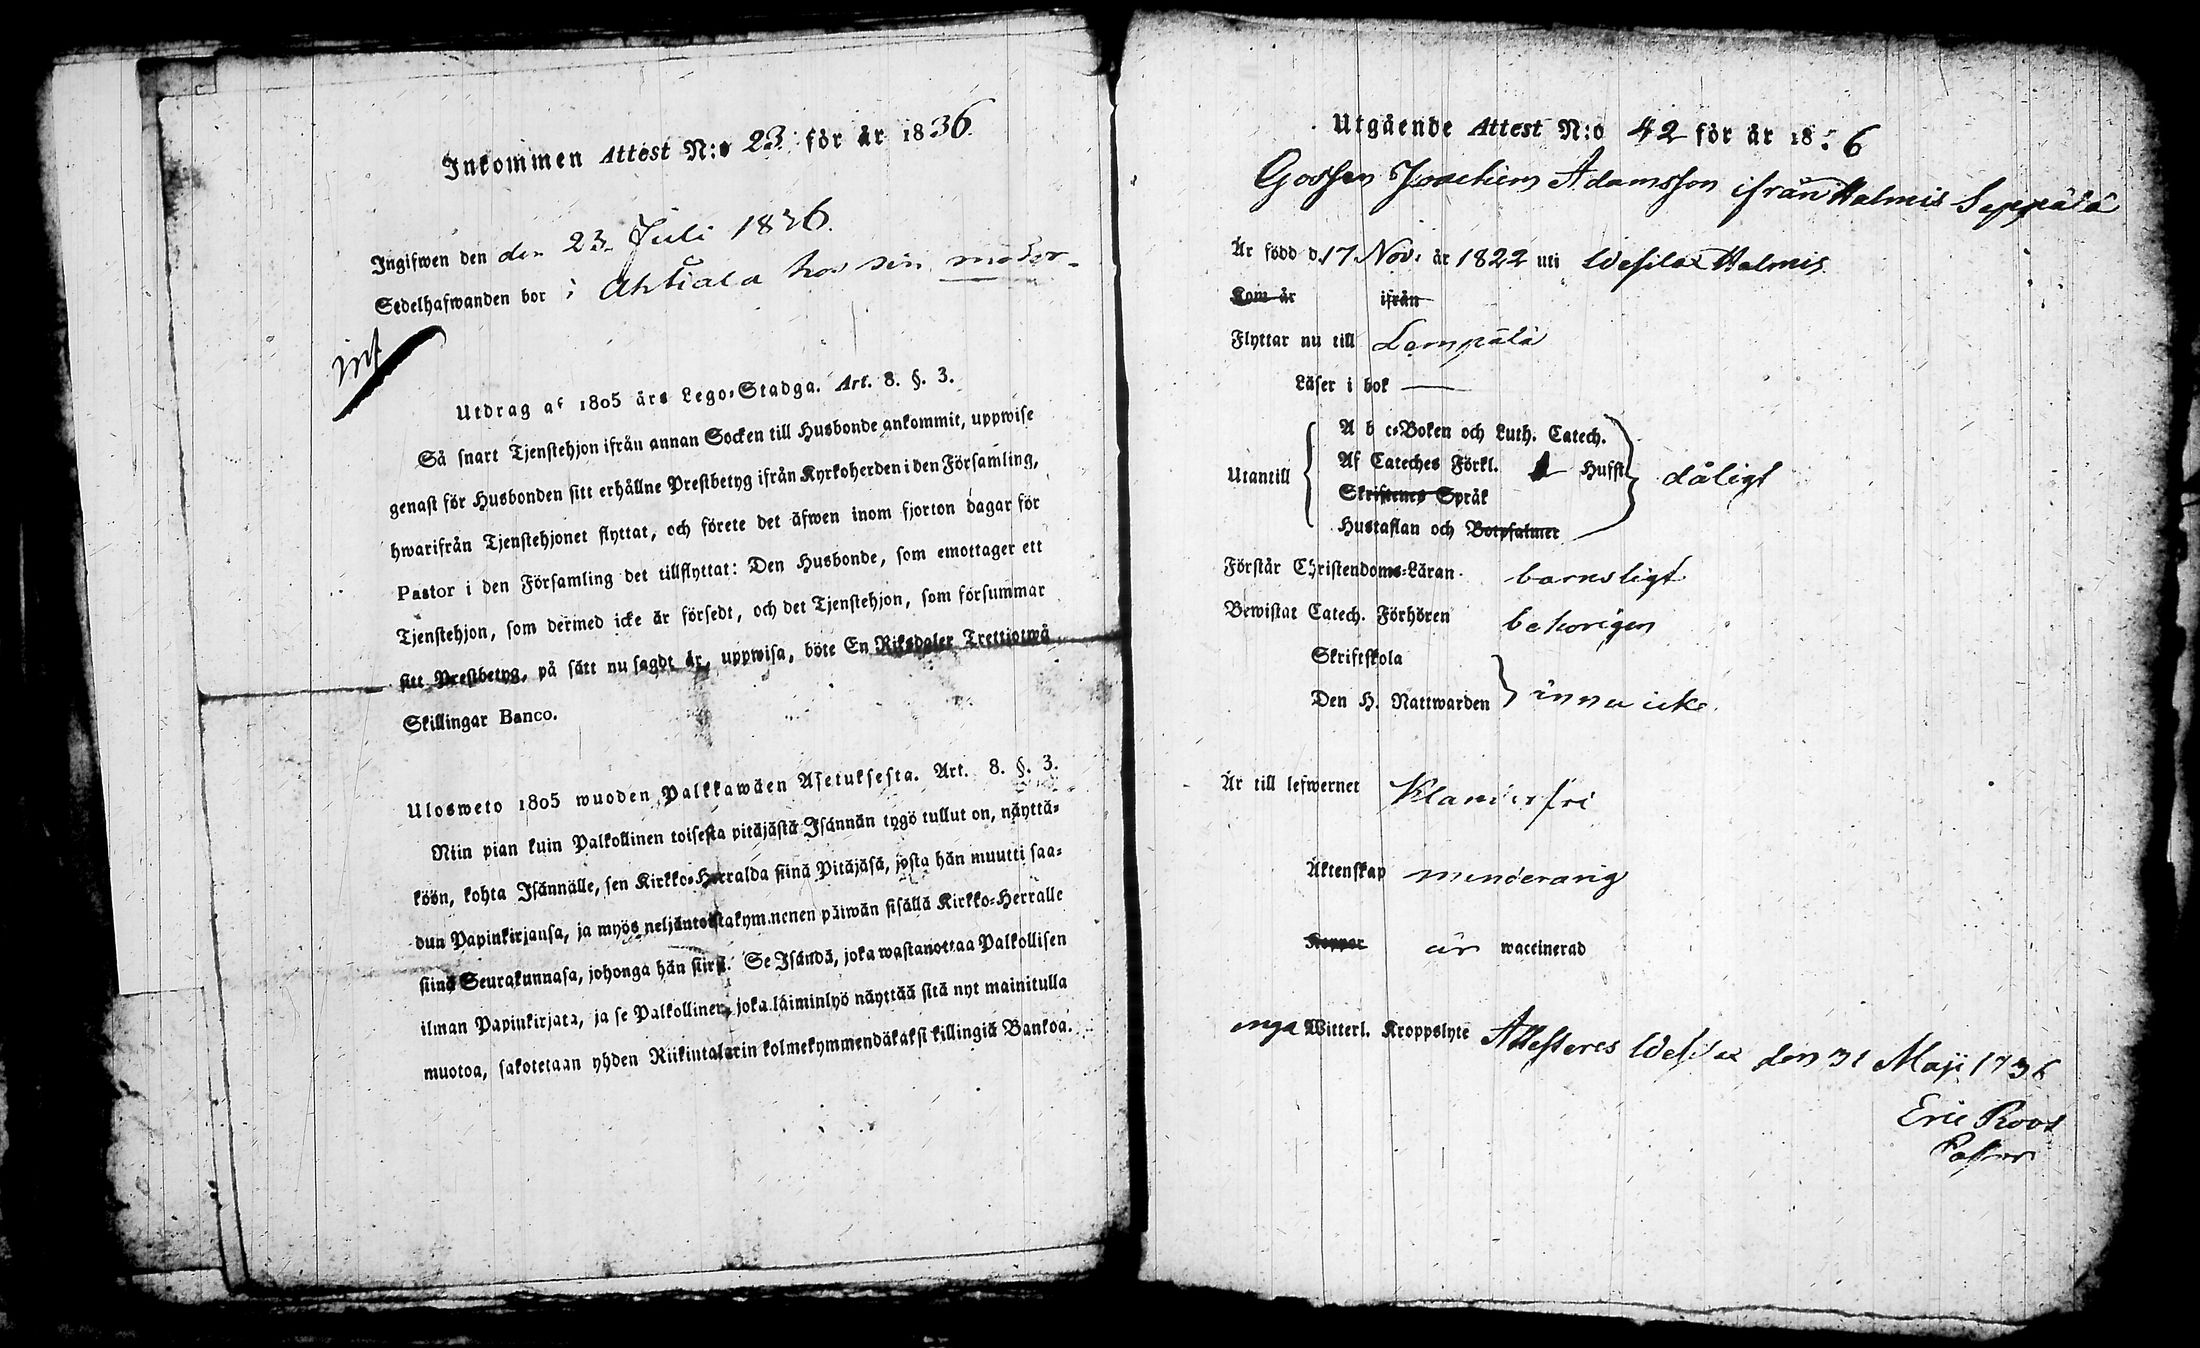 Inkommen Attest N:o 23 för år 1836
Ingifwen den den 23 Juli 1836.
Sedelhafwanden bor i Ahtiala hos sin moder
int
Utdrag af 1805 års Lego-Stadga. Art. 8. §. 3.
Så snart Tjenstehjon ifrån annan Socken till Husbonde ankommit, uppwise
genast för Husbonden sitt erhållne Prestbetyg ifrån Kyrkoherden i den Församling,
hwarifrån Tjenstehjonet flyttat, och förete det äfwen inom fjorton dagar för
Pastor i den Församling det tillflyttat: Den Husbonde, som emottager ett
Tjenstehjon, som dermed icke är försedt, och det Tjenstehjon, som försummar
sitt Prestbetyg, på sätt nu sagdt är, uppwisa, böte En Riksdaler Trettiotwå
Skillingar Banco.
Ulosweto 1805 wuoden Palkkawäen Asetuksesta. Art. 8. §. 3.
Niin pian kuin Palkollinen toisesta pitäjästä Isännän tygö tullut on, näyttä-
köön, kohta Isännälle, sen Kirkko-Herralda siinä Pitäjäsä, josta hän muutti saa-
dun Papinkirjansa, ja myös neljäntoistakymmenen päiwän sisällä Kirkko-Herralle
siinä Seurakunnasa, johonga hän siirsi. Se Isändä, joka wastanottaa Palkollisen
ilman Papinkirjata, ja se Palkollinen, joka laiminlyö näyttää sitä nyt mainitulla
muotoa, sakotetaan yhden Riikintalarin kolmekymmendäkaksi killingiä Bankoa.
Utgående Attest N:o 42 för år 18 6
Gossen Joachim Adamsson ifrån Halmis Seppälä
Är född d. 17 Nov. år 1822 uti Wesilax Halmis
Kom år ifrån
Flyttar nu till Lempälä
Läser i bok —
A b c-Boken och Luth. Catech.
Af Cateches Förkl. Hufst.
Utantill dåligt
Skriftenes Språk
Hustaflan och Botpsalmer
Förstår Christendoms-Läran barnsligt
Bewistat Catech. Förhören behörigen
Skriftskola
Den H. Nattwarden ännu icke
Är till lefwernet Klanderfri
Äktenskap minderårig
Koppor är waccinerad
inga Witterl. Kroppslyte Attesteres Wesilax den 31 Maji 1736
Eric Roos
Pastor